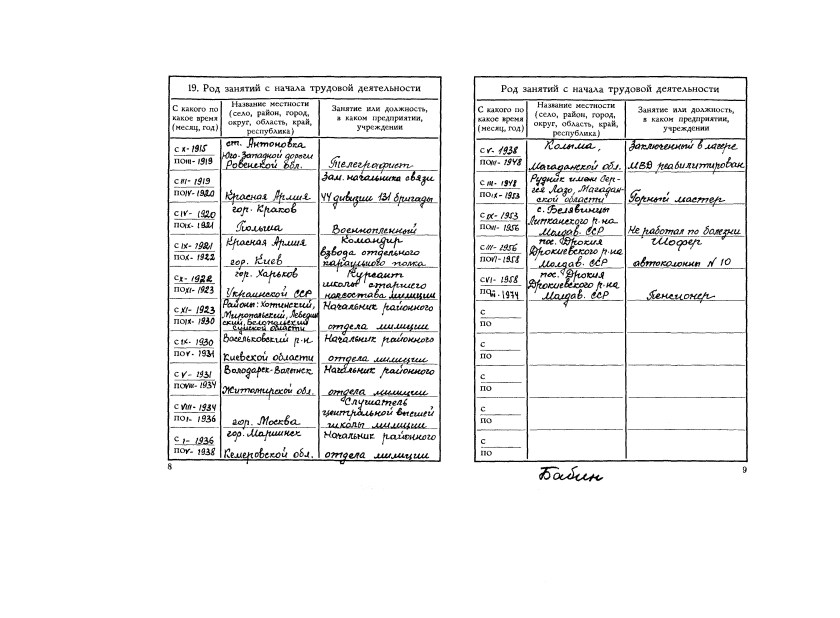 19. Род занятий с начала трудовой деятельности
С какого по
какое время
(месяц, год)
Название местности
(село, район, город,
округ, область, край,
республика)
Занятие или должность,
в каком предприятии,
учреждении
с X - 1915
по III - 1919
ст. Антоновка
Юго-Западной дороги
Ровенской обл.
Телеграфист
с III - 1919
по IV - 1920
Красная Армия
Зам. начальника связи
44 дивизии 131 бригады
с IV - 1920
по IX - 1921
гор. Краков
Польша
Военнопленный
с IX - 1921
по X - 1922
Красная Армия
гор. Киев
Командир
взвода отдельного
караульного полка
с X - 1922
по XI - 1923
гор. Харьков
Украинской ССР
Курсант
школы старшего
начсостава милиции
с XI - 1923
по IX - 1930
Районы: Хотинский,
Миропольский, Лебедин
ский, Белопольский
Сумской области
Начальник районного
отдела милиции
с IX - 1930
по V - 1931
Васельковский р-н
Киевской области
Начальник районного
отдела милиции
с V - 1931
по VIII - 1934
Володарск-Волынск
Житомирской обл.
Начальник районного
отдела милиции
с VIII - 1934
по I - 1936
гор. Москва
Слушатель
центральной высшей
школы милиции
с I - 1936
по V - 1938
гор. Маршинск
Кемеровской обл.
Начальник районного
отдела милиции
8
Род занятий с начала трудовой деятельности
С какого по
какое время
(месяц, год)
Название местности
(село, район, город,
округ, область, край,
республика)
Занятие или должность,
в каком предприятии,
учреждении
с V - 1938
по III - 1948
Колыма,
Магаданской обл.
Заключенный в лагере
МВД реабилитирован
с III - 1948
по IX - 1953
Рудник имени Сер-
гея Лазо, Магадан-
ской области
Горный мастер
с IX - 1953
по III - 1956
с. Белявинцы
Липканского р-на
Молдав. ССР
Не работал по болезни
с III - 1956
по VI - 1958
пос. Дрокия
Дрокиевского р-на
Молдав. ССР
Шофер
автоколонны N 10
с VI - 1958
по III - 1974
пос. Дрокия
Дрокиевского р-на
Молдав. ССР
Пенсионер
с
по
с
по
с
по
с
по
с
по
Бабин
9